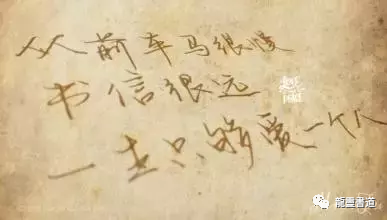 从前车马很慢
书信很远
一生只够爱一个人
LOVE
PEACE
龍豐書道